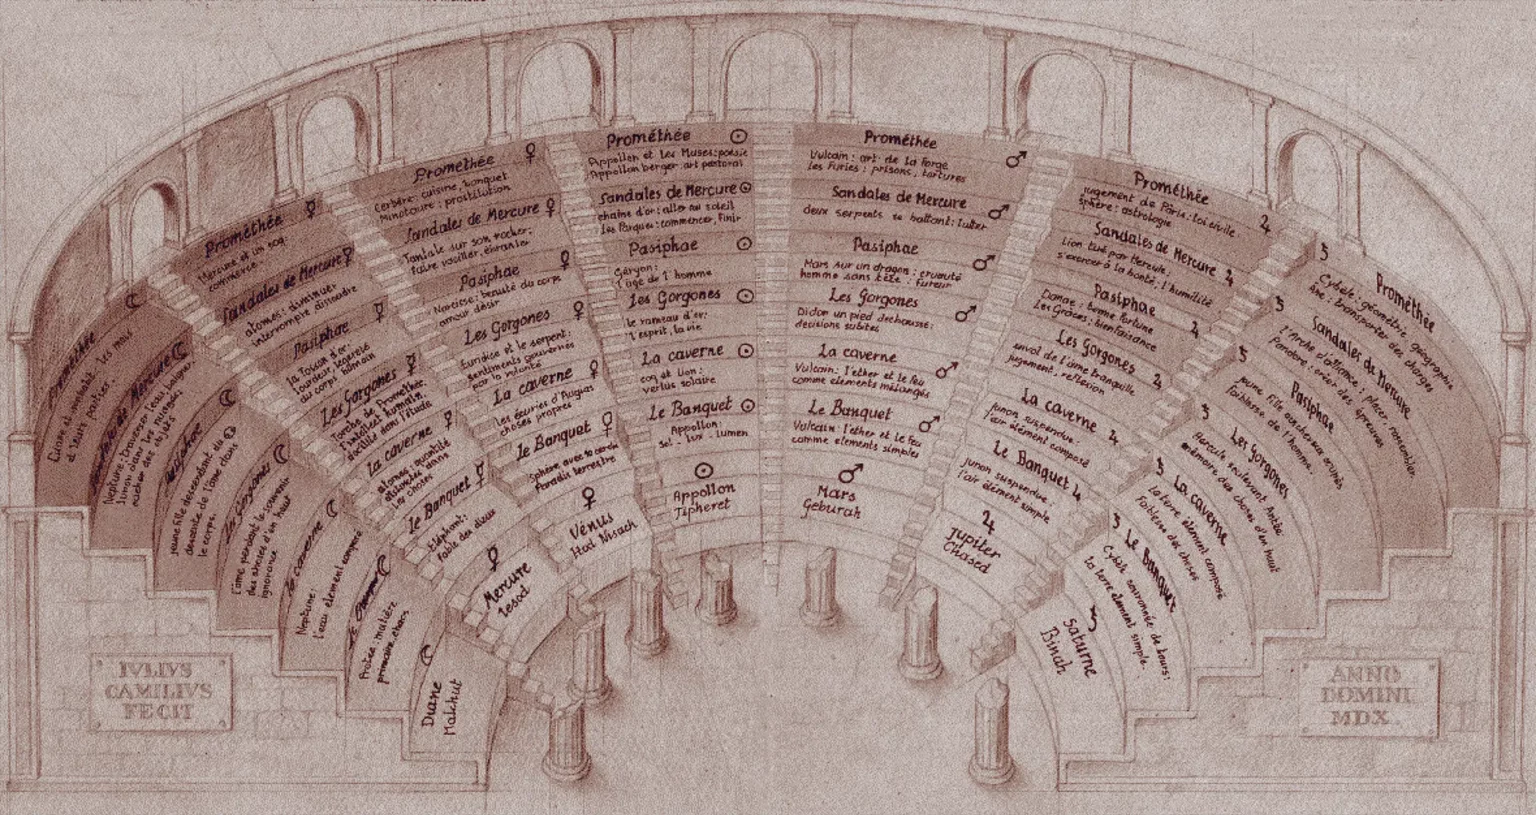 Prométhée
Cérès et
les mois
d'leurs parties.
Sandales de Mercure
Neptune: traverser l'eau, baigner
limon dans les
cacher des objets
Pasiphae
jeune fille descendant du
descente de l'âme dans
le corps.
les Gorgones
l'âme perdant le souvenir
des choses d'en haut
ignorance
la caverne
Neptune:
l'eau élément composé
Le Banquet
Protée: matière
première, chaos
Diane
Malchut
Prométhée
Mercure et un coq:
commerce
Sandales de Mercure
atomes: diminuer
interrompre dissoudre
Pasiphae
la Toison d'or:
lourdeur, légèreté
du corps humain
Les Gorgones
Torche de Prométhée:
l'intellect humain,
docilité dans l'étude
la caverne
atomes: quantité
distincte dans
les choses
le Banquet
Eléphant:
fable des dieux
Mercure
Iesod
Prométhée
Cerbère: cuisine, banquet
Minotaure: prostitution
Sandales de Mercure
Tantale sur son rocher:
faire vaciller, ébranler
Pasiphae
Narcisse: beauté du corps
amour désir
Les Gorgones
Euridice et le serpent:
sentiments gouvernés
par la volonté
La caverne
Les écuries d'Augias
choses propres
le Banquet
Sphère avec 10 cercles
Paradis terrestre
Vénus
Hod Nisach
Prométhée
Appollon et les Muses: poésie
Appollon berger: art pastoral
Sandales de Mercure
chaîne d'or: aller au soleil
les Parques: commencer, finir
Pasiphae
Géryon:
l'âge de l'homme
les Gorgones
le rameau d'or:
l'esprit, la vie
La caverne
coq et lion:
vertus solaire
Le Banquet
Appollon:
sol - lux - lumen
Appollon
Tipheret
Prométhée
Vulcain: art de la forge
les Furies: prisons, tortures
Sandales de Mercure
deux serpents se battant: lutter
Pasiphae
Mars sur un dragon: cruauté
homme sans tête: fureur
Les Gorgones
Didon un pied déchaussé:
décisions subites
La caverne
Vulcain: l'éther et le feu
comme éléments mélangés
Le Banquet
Vulcain: l'éther et le feu
comme éléments simples
Mars
Geburah
Prométhée
jugement de Pâris: loi civile
sphère: astrologie
Sandales de Mercure
Lion tué par Hercule:
s'exercer à la bonté, l'humilité
Pasiphae
Danae: bonne fortune
Les Grâces: bienfaisance
Les Gorgones
envol de l'âme tranquille
jugement, réflexion
La caverne
junon suspendue:
l'air élément composé
Le Banquet
junon suspendue:
l'air élément simple
Jupiter
Chased
Prométhée
Cybèle: géométrie, géographie
Âne: transporter des charges
Sandales de Mercure
L'Arche d'alliance: placer, rassembler
Pandore: créer des épreuves
Pasiphae
jeune fille aux cheveux
faiblesse de l'homme.
Les Gorgones
Hercule soulevant Antée
mémoire des choses d'en haut
La caverne
la terre élément composé
faiblesse des choses
Le Banquet
Cybèle couronnée de tours:
la terre élément simple.
Saturne
Binah
IVLIVS
CAMILIVS
FECIT
ANNO
DOMINI
MDX